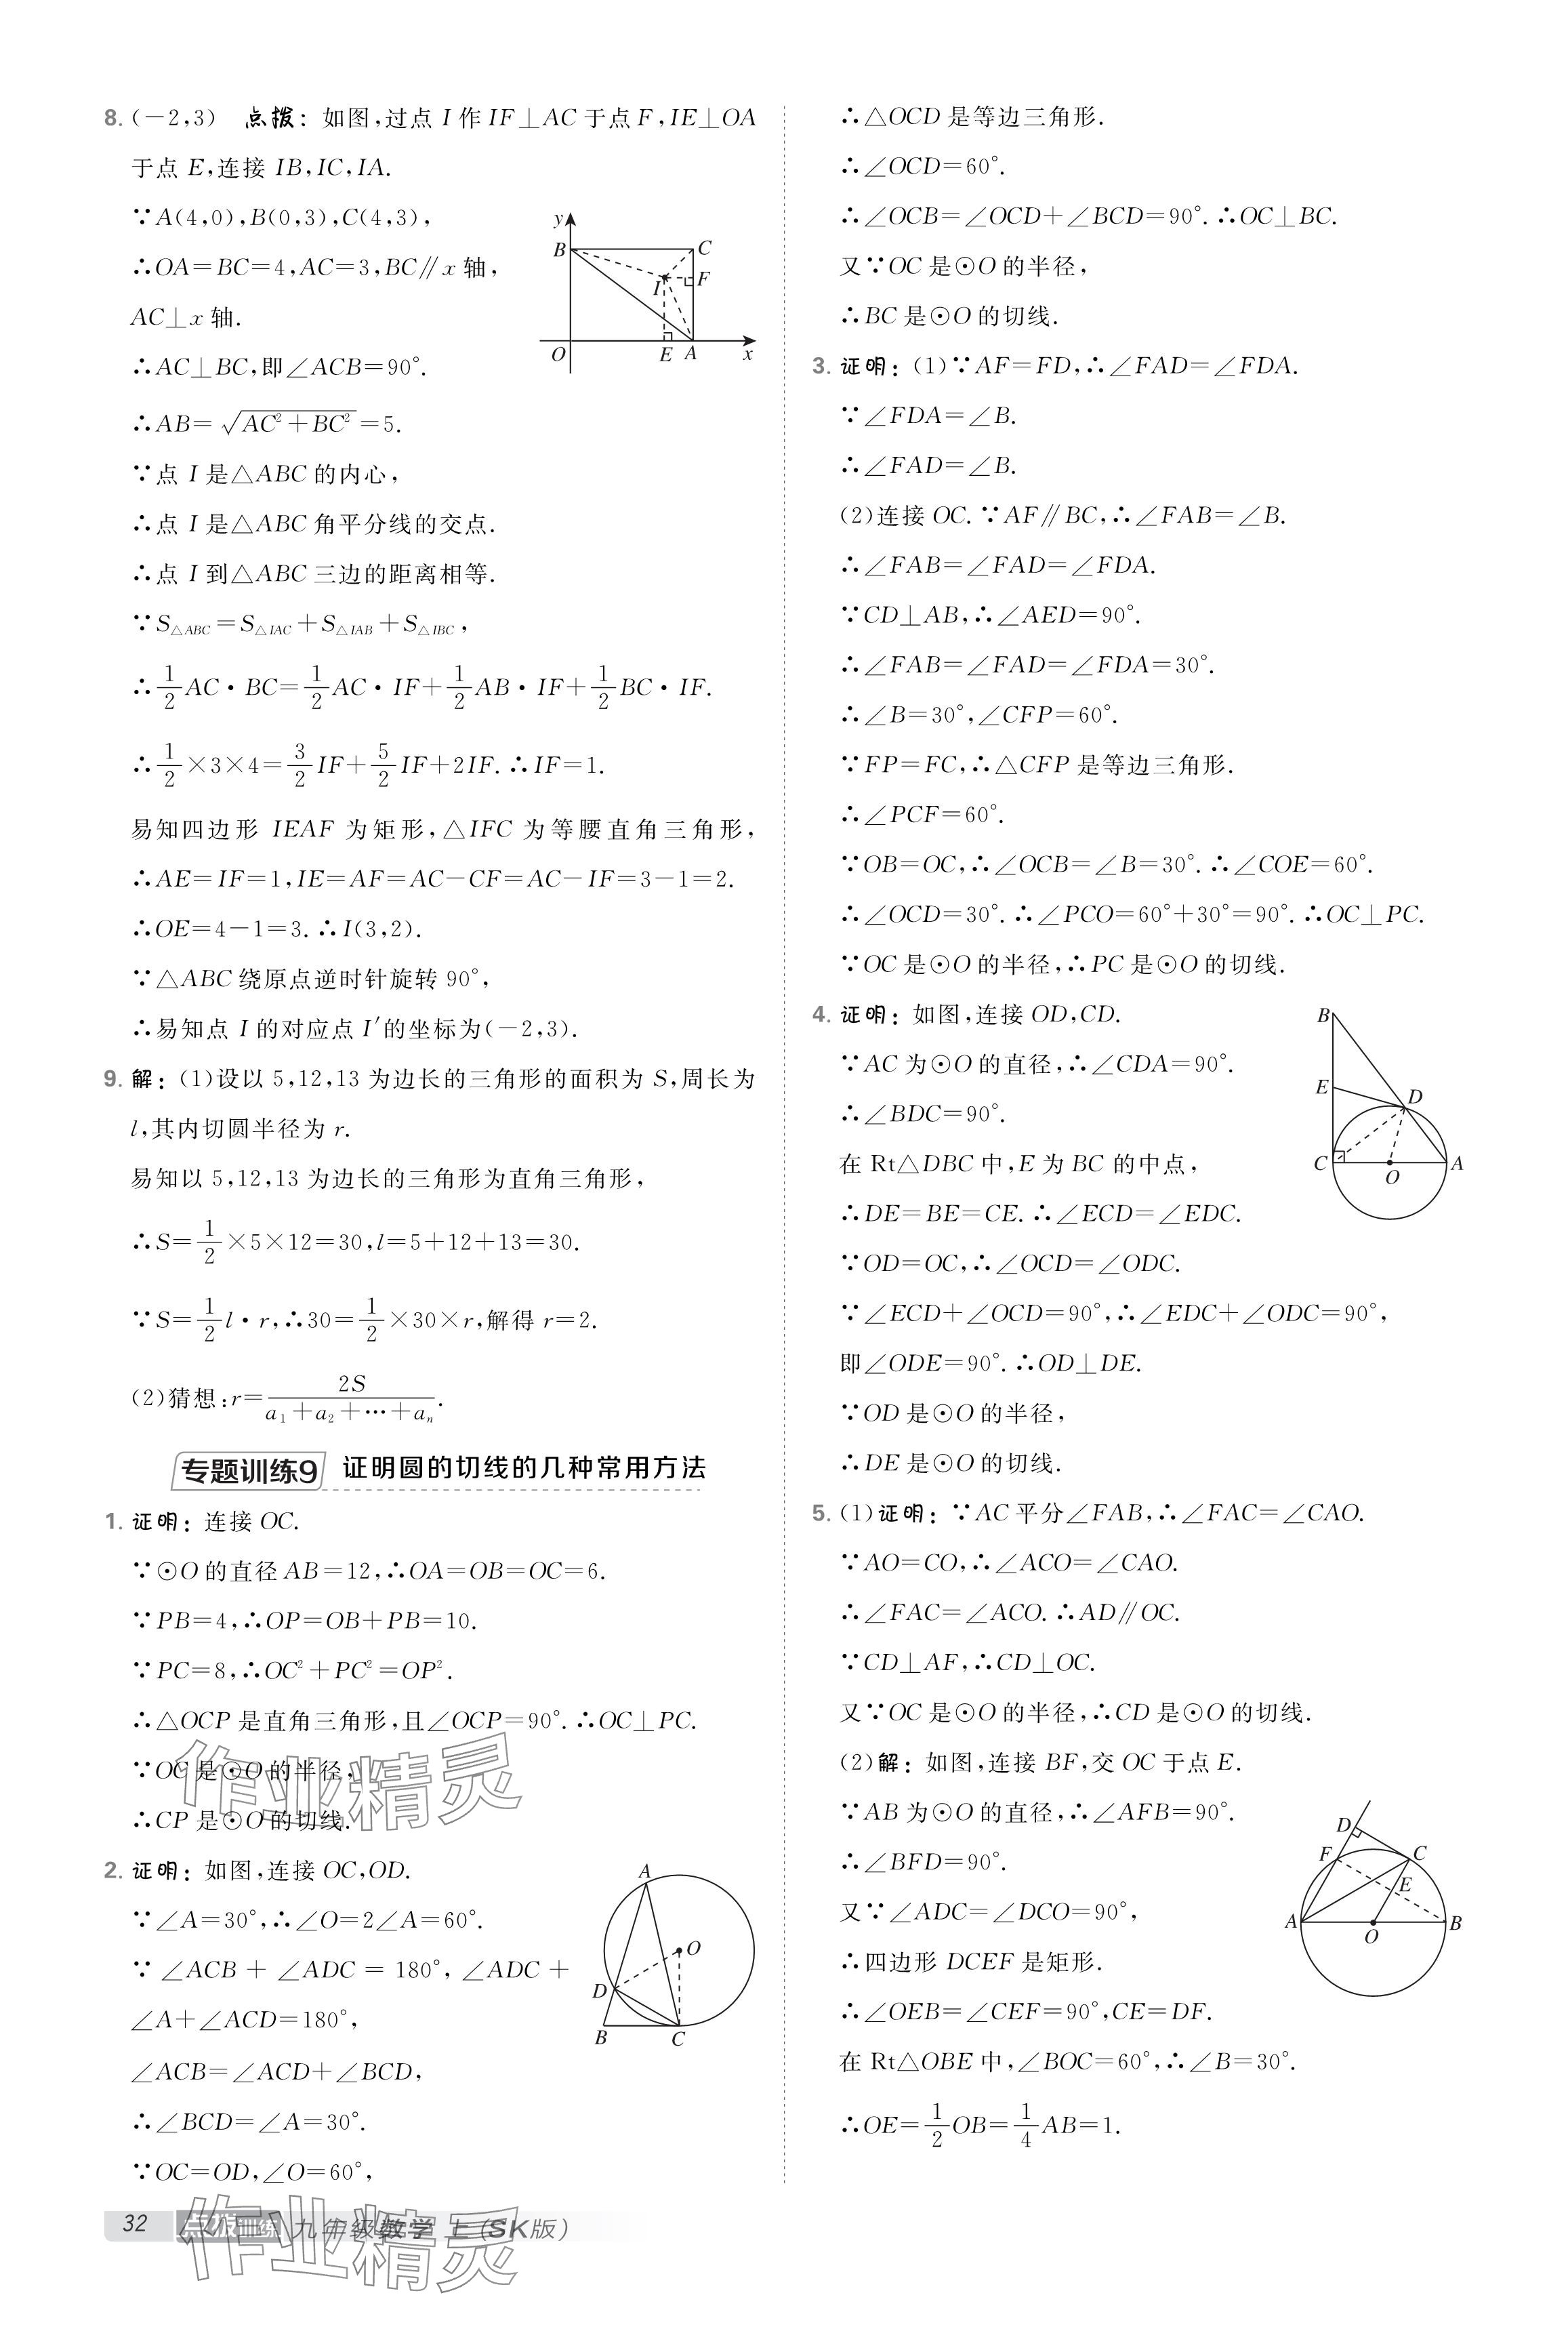 8. (-2,3) 点拨：如图,过点 I 作 IF⊥AC 于点 F,IE⊥OA
于点 E,连接 IB,IC,IA.
∵A(4,0),B(0,3),C(4,3),
∴OA=BC=4,AC=3,BC∥x 轴,
AC⊥x 轴.
∴AC⊥BC,即∠ACB=90°.
y B C I F O E A x
∴AB=√(AC²+BC²)=5.
∵点 I 是△ABC 的内心,
∴点 I 是△ABC 角平分线的交点.
∴点 I 到△ABC 三边的距离相等.
∵S△ABC=S△IAC+S△IAB+S△IBC,
∴1/2 AC·BC=1/2 AC·IF+1/2 AB·IF+1/2 BC·IF.
∴1/2×3×4=3/2 IF+5/2 IF+2IF.∴IF=1.
易知四边形 IEAF 为矩形,△IFC 为等腰直角三角形,
∴AE=IF=1,IE=AF=AC-CF=AC-IF=3-1=2.
∴OE=4-1=3.∴I(3,2).
∵△ABC 绕原点逆时针旋转 90°,
∴易知点 I 的对应点 I′的坐标为(-2,3).
9. 解：(1)设以 5,12,13 为边长的三角形的面积为 S,周长为
l,其内切圆半径为 r.
易知以 5,12,13 为边长的三角形为直角三角形,
∴S=1/2×5×12=30,l=5+12+13=30.
∵S=1/2 l·r,∴30=1/2×30×r,解得 r=2.
(2)猜想:r=2S/(a₁+a₂+…+aₙ).
专题训练9 证明圆的切线的几种常用方法
1. 证明：连接 OC.
∵⊙O 的直径 AB=12,∴OA=OB=OC=6.
∵PB=4,∴OP=OB+PB=10.
∵PC=8,∴OC²+PC²=OP².
∴△OCP 是直角三角形,且∠OCP=90°.∴OC⊥PC.
∵OC 是⊙O 的半径,
∴CP 是⊙O 的切线.
作业精灵
2. 证明：如图,连接 OC,OD.
∵∠A=30°,∴∠O=2∠A=60°.
∵∠ACB+∠ADC=180°,∠ADC+
∠A+∠ACD=180°,
∠ACB=∠ACD+∠BCD,
∴∠BCD=∠A=30°.
∵OC=OD,∠O=60°,
A O D B C
∴△OCD 是等边三角形.
∴∠OCD=60°.
∴∠OCB=∠OCD+∠BCD=90°.∴OC⊥BC.
又∵OC 是⊙O 的半径,
∴BC 是⊙O 的切线.
3. 证明：(1)∵AF=FD,∴∠FAD=∠FDA.
∵∠FDA=∠B.
∴∠FAD=∠B.
(2)连接 OC.∵AF∥BC,∴∠FAB=∠B.
∴∠FAB=∠FAD=∠FDA.
∵CD⊥AB,∴∠AED=90°.
∴∠FAB=∠FAD=∠FDA=30°.
∴∠B=30°,∠CFP=60°.
∵FP=FC,∴△CFP 是等边三角形.
∴∠PCF=60°.
∵OB=OC,∴∠OCB=∠B=30°.∴∠COE=60°.
∴∠OCD=30°.∴∠PCO=60°+30°=90°.∴OC⊥PC.
∵OC 是⊙O 的半径,∴PC 是⊙O 的切线.
4. 证明：如图,连接 OD,CD.
∵AC 为⊙O 的直径,∴∠CDA=90°.
∴∠BDC=90°.
在 Rt△DBC 中,E 为 BC 的中点,
∴DE=BE=CE.∴∠ECD=∠EDC.
∵OD=OC,∴∠OCD=∠ODC.
∵∠ECD+∠OCD=90°,∴∠EDC+∠ODC=90°,
即∠ODE=90°.∴OD⊥DE.
∵OD 是⊙O 的半径,
∴DE 是⊙O 的切线.
B E D C O A
5. (1)证明：∵AC 平分∠FAB,∴∠FAC=∠CAO.
∵AO=CO,∴∠ACO=∠CAO.
∴∠FAC=∠ACO.∴AD∥OC.
∵CD⊥AF,∴CD⊥OC.
又∵OC 是⊙O 的半径,∴CD 是⊙O 的切线.
(2)解：如图,连接 BF,交 OC 于点 E.
∵AB 为⊙O 的直径,∴∠AFB=90°.
∴∠BFD=90°.
又∵∠ADC=∠DCO=90°,
∴四边形 DCEF 是矩形.
∴∠OEB=∠CEF=90°,CE=DF.
在 Rt△OBE 中,∠BOC=60°,∴∠B=30°.
∴OE=1/2 OB=1/4 AB=1.
D F C E A O B
32 点拨训练 九年级数学 上(SK版)
作业精灵